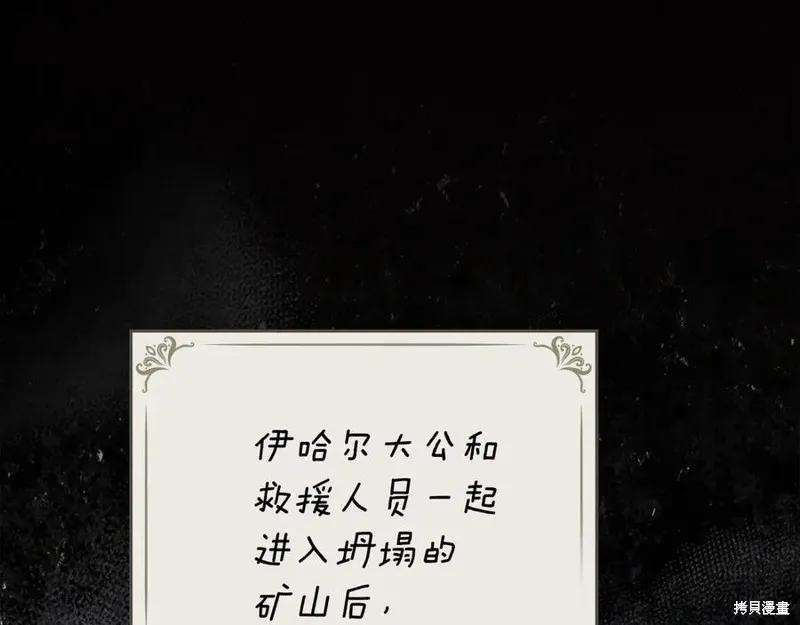 伊哈尔大公和
救援人员一起
进入坍塌的
矿山后，
拷貝漫畫